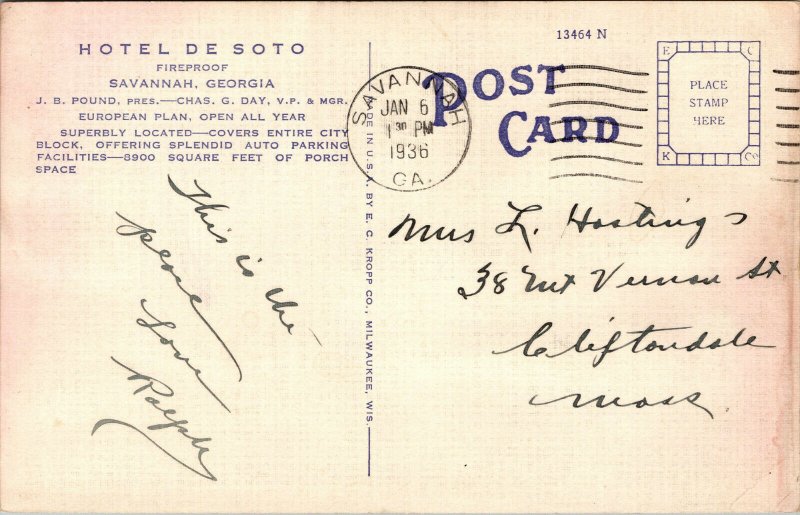 HOTEL DE SOTO
FIREPROOF
SAVANNAH, GEORGIA
J. B. POUND, PRES.—CHAS. G. DAY, V.P. & MGR.
EUROPEAN PLAN, OPEN ALL YEAR
SUPERBLY LOCATED—COVERS ENTIRE CITY
BLOCK, OFFERING SPLENDID AUTO PARKING
FACILITIES—8900 SQUARE FEET OF PORCH
SPACE
This is the
place
Love
Ralph
MADE IN U.S.A. BY E. C. KROPP CO., MILWAUKEE, WIS.
SAVANNAH
JAN 6
1 30 PM
1936
GA.
POST
CARD
13464 N
E C
PLACE
STAMP
HERE
K Co
Mrs L. Hastings
38 Mt Vernon St
Cliftondale
Mass